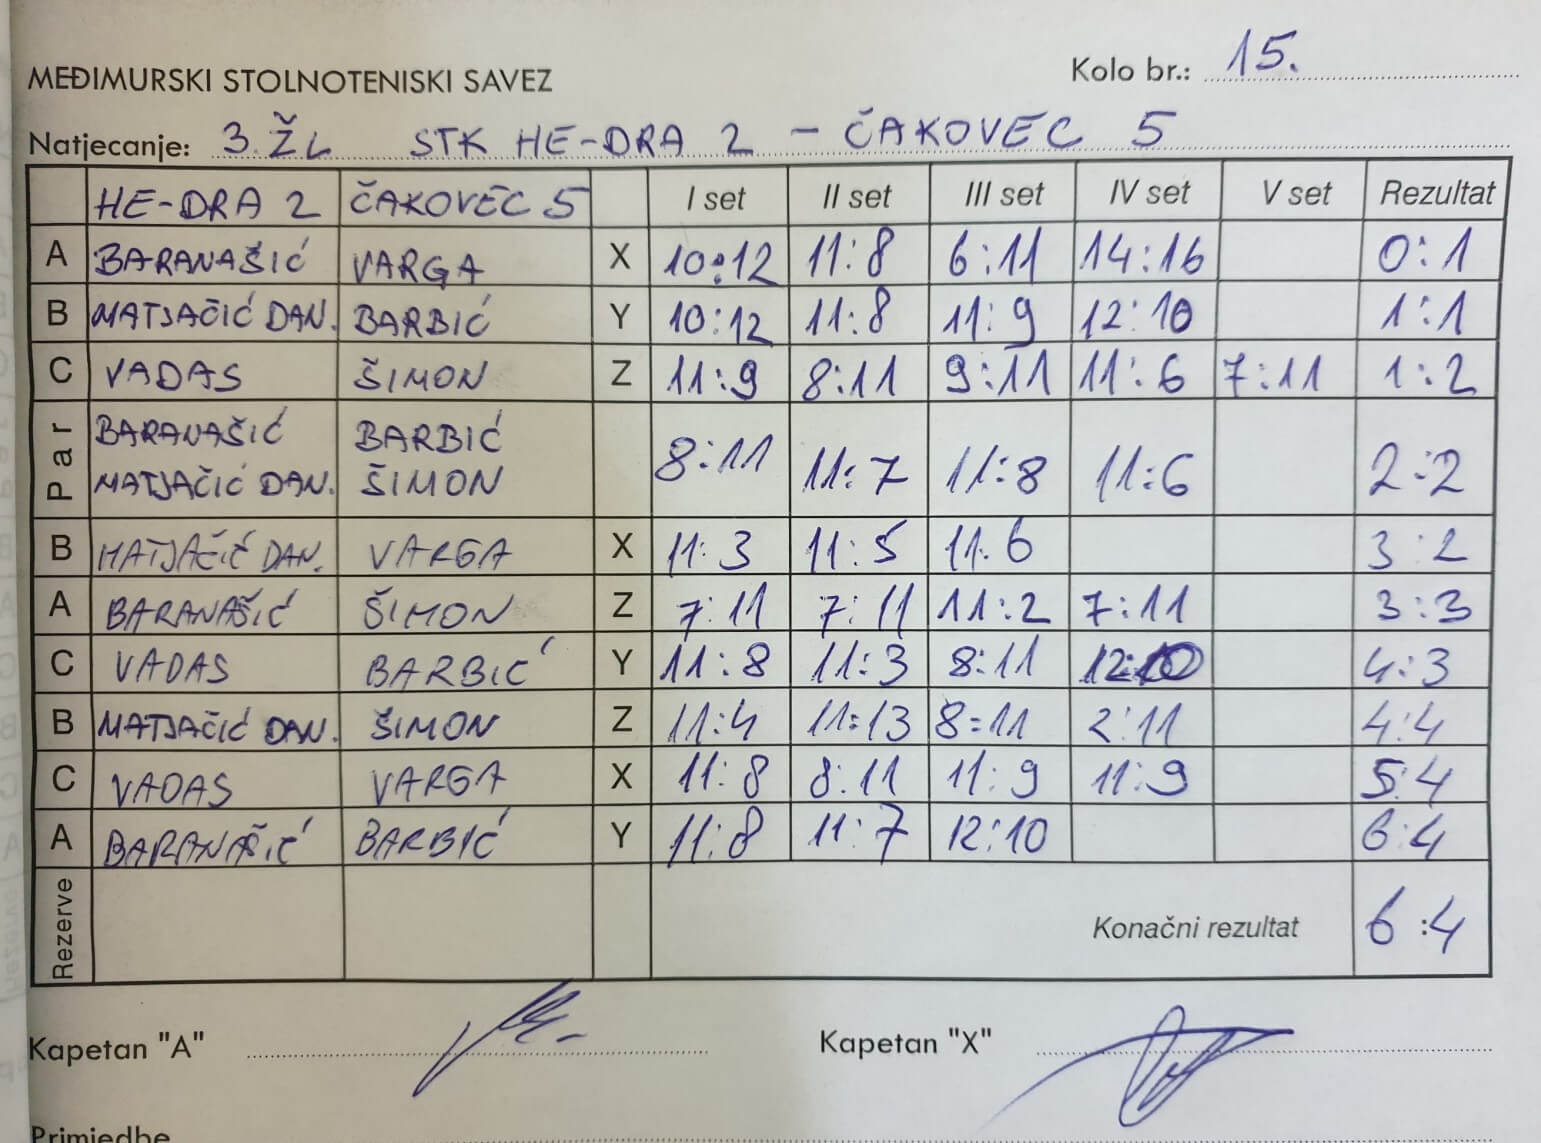 Kolo br.: 15.
MEĐIMURSKI STOLNOTENISKI SAVEZ
Natjecanje: 3. ŽL STK HE-DRA 2 - ČAKOVEC 5
HE-DRA 2 ČAKOVEC 5 I set II set III set IV set V set Rezultat
A BARANAŠIĆ VARGA X 10:12 11:8 6:11 14:16 0:1
B MATJAČIĆ DAN. BARBIĆ Y 10:12 11:8 11:9 12:10 1:1
C VADAS ŠIMON Z 11:9 8:11 9:11 11:6 7:11 1:2
Par BARANAŠIĆ BARBIĆ
MATJAČIĆ DAN. ŠIMON 8:11 11:7 11:8 11:6 2:2
B MATJAČIĆ DAN. VARGA X 11:3 11:5 11.6 3:2
A BARANAŠIĆ ŠIMON Z 7:11 7:11 11:2 7:11 3:3
C VADAS BARBIĆ Y 11:8 11:3 8:11 12:10 4:3
B MATJAČIĆ DAN. ŠIMON Z 11:4 11:13 8=11 2:11 4:4
C VADAS VARGA X 11:8 8:11 11:9 11:9 5:4
A BARANAŠIĆ BARBIĆ Y 11:8 11:7 12:10 6:4
Rezerve Konačni rezultat 6:4
Kapetan "A" Kapetan "X"
Primjedbe